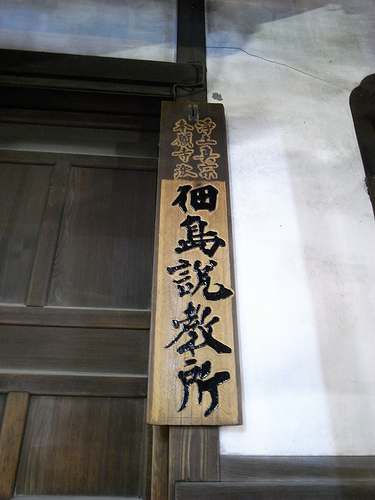 浄土真宗
本願寺派
佃島說教所